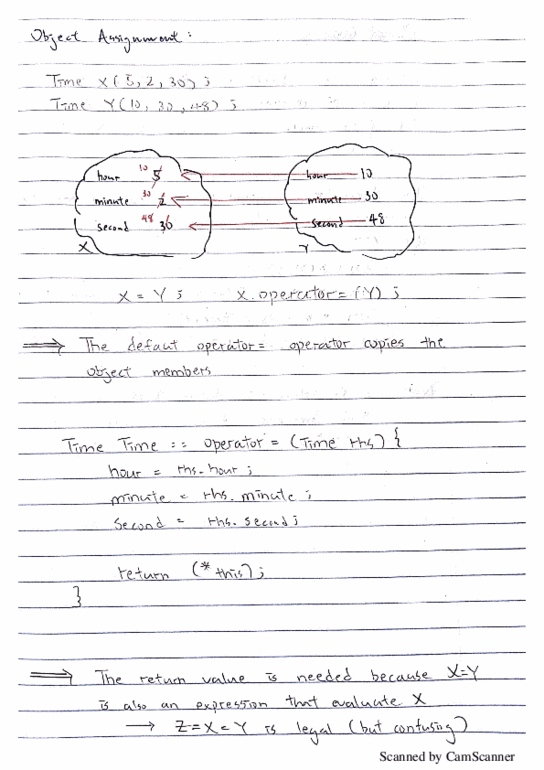 Object Assignment :
Time X(5, 2, 30) ;
Time Y(10, 30, 48) ;
hour 10 5 hour 10
minute 30 2 minute 30
second 48 30 second 48
X Y
X = Y ; X.operator=(Y) ;
⟹ The defaut operator= operator copies the
object members
Time Time :: operator = (Time rhs) {
hour = rhs.hour ;
minute = rhs.minute ;
second = rhs.second ;
return (*this) ;
}
⟹ The return value is needed because X=Y
is also an expression that evaluate X
→ Z=X=Y is legal (but confusing)
Scanned by CamScanner